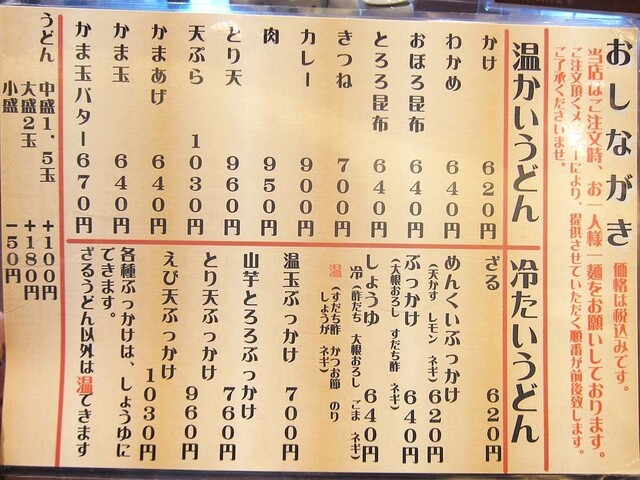 おしながき
価格は税込みです。
当店はご注文時、お一人様一麺をお願いしております。
ご注文頂くメニューにより、提供させていただく順番が前後致します。
ご了承くださいませ。
温かいうどん
かけ 620円
わかめ 640円
おぼろ昆布 640円
とろろ昆布 640円
きつね 700円
カレー 900円
肉 950円
とり天 960円
天ぷら 1030円
かまあげ 640円
かま玉 640円
かま玉バター 670円
冷たいうどん
ざる 620円
めんくいぶっかけ 620円
(天かす レモン ネギ)
ぶっかけ 640円
(大根おろし すだち酢 ネギ)
しょうゆ 640円
冷 (酢だち 大根おろし ごま ネギ)
温 (すだち酢 かつお節 のり
しょうが ネギ)
温玉ぶっかけ 700円
山芋とろろぶっかけ 760円
とり天ぶっかけ 960円
えび天ぶっかけ 1030円
各種ぶっかけは、しょうゆに
できます。
ざるうどん以外は温できます
うどん 中盛1.5玉 +100円
大盛2玉 +180円
小盛 -50円